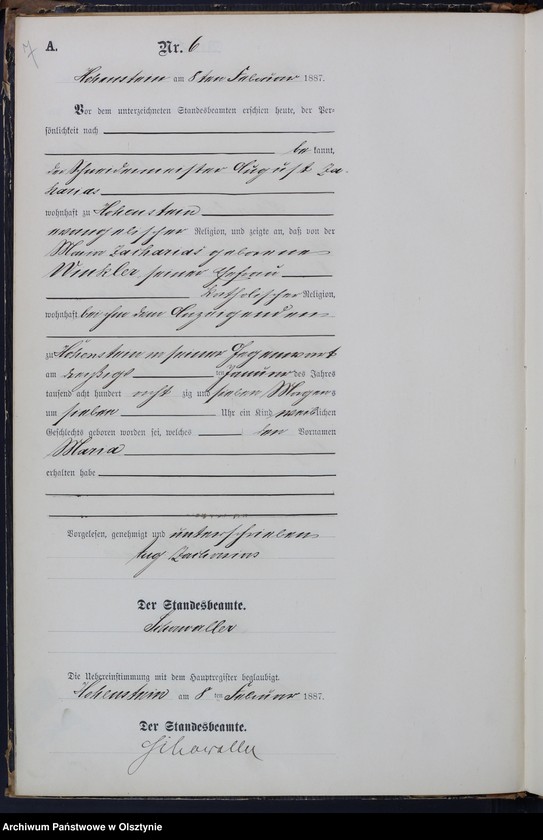 7
A.
Nr. 6
Hohenstein am 8ten Februar 1887.
Vor dem unterzeichneten Standesbeamten erschien heute, der Per-
sönlichkeit nach
be kannt,
der Schneidermeister August Za-
charias
wohnhaft zu Hohenstein
evangelischer Religion, und zeigte an, daß von der
Maria Zacharias geborene
Winkler, seiner Ehefrau
katholischer Religion,
wohnhaft bei ihm dem Anzeigenden
zu Hohenstein in seiner Gegenwart
am ten Januar des Jahres
tausend acht hundert acht zig und sieben Morgens
um sieben Uhr ein Kind weiblichen
Geschlechts geboren worden sei, welches den Vornamen
Maria
erhalten habe
Vorgelesen, genehmigt und unterschrieben
Aug Zacharias
Der Standesbeamte.
Die Uebereinstimmung mit dem Hauptregister beglaubigt.
Hohenstein am 8ten Februar 1887.
Der Standesbeamte.
Archiwum Państwowe w Olsztynie